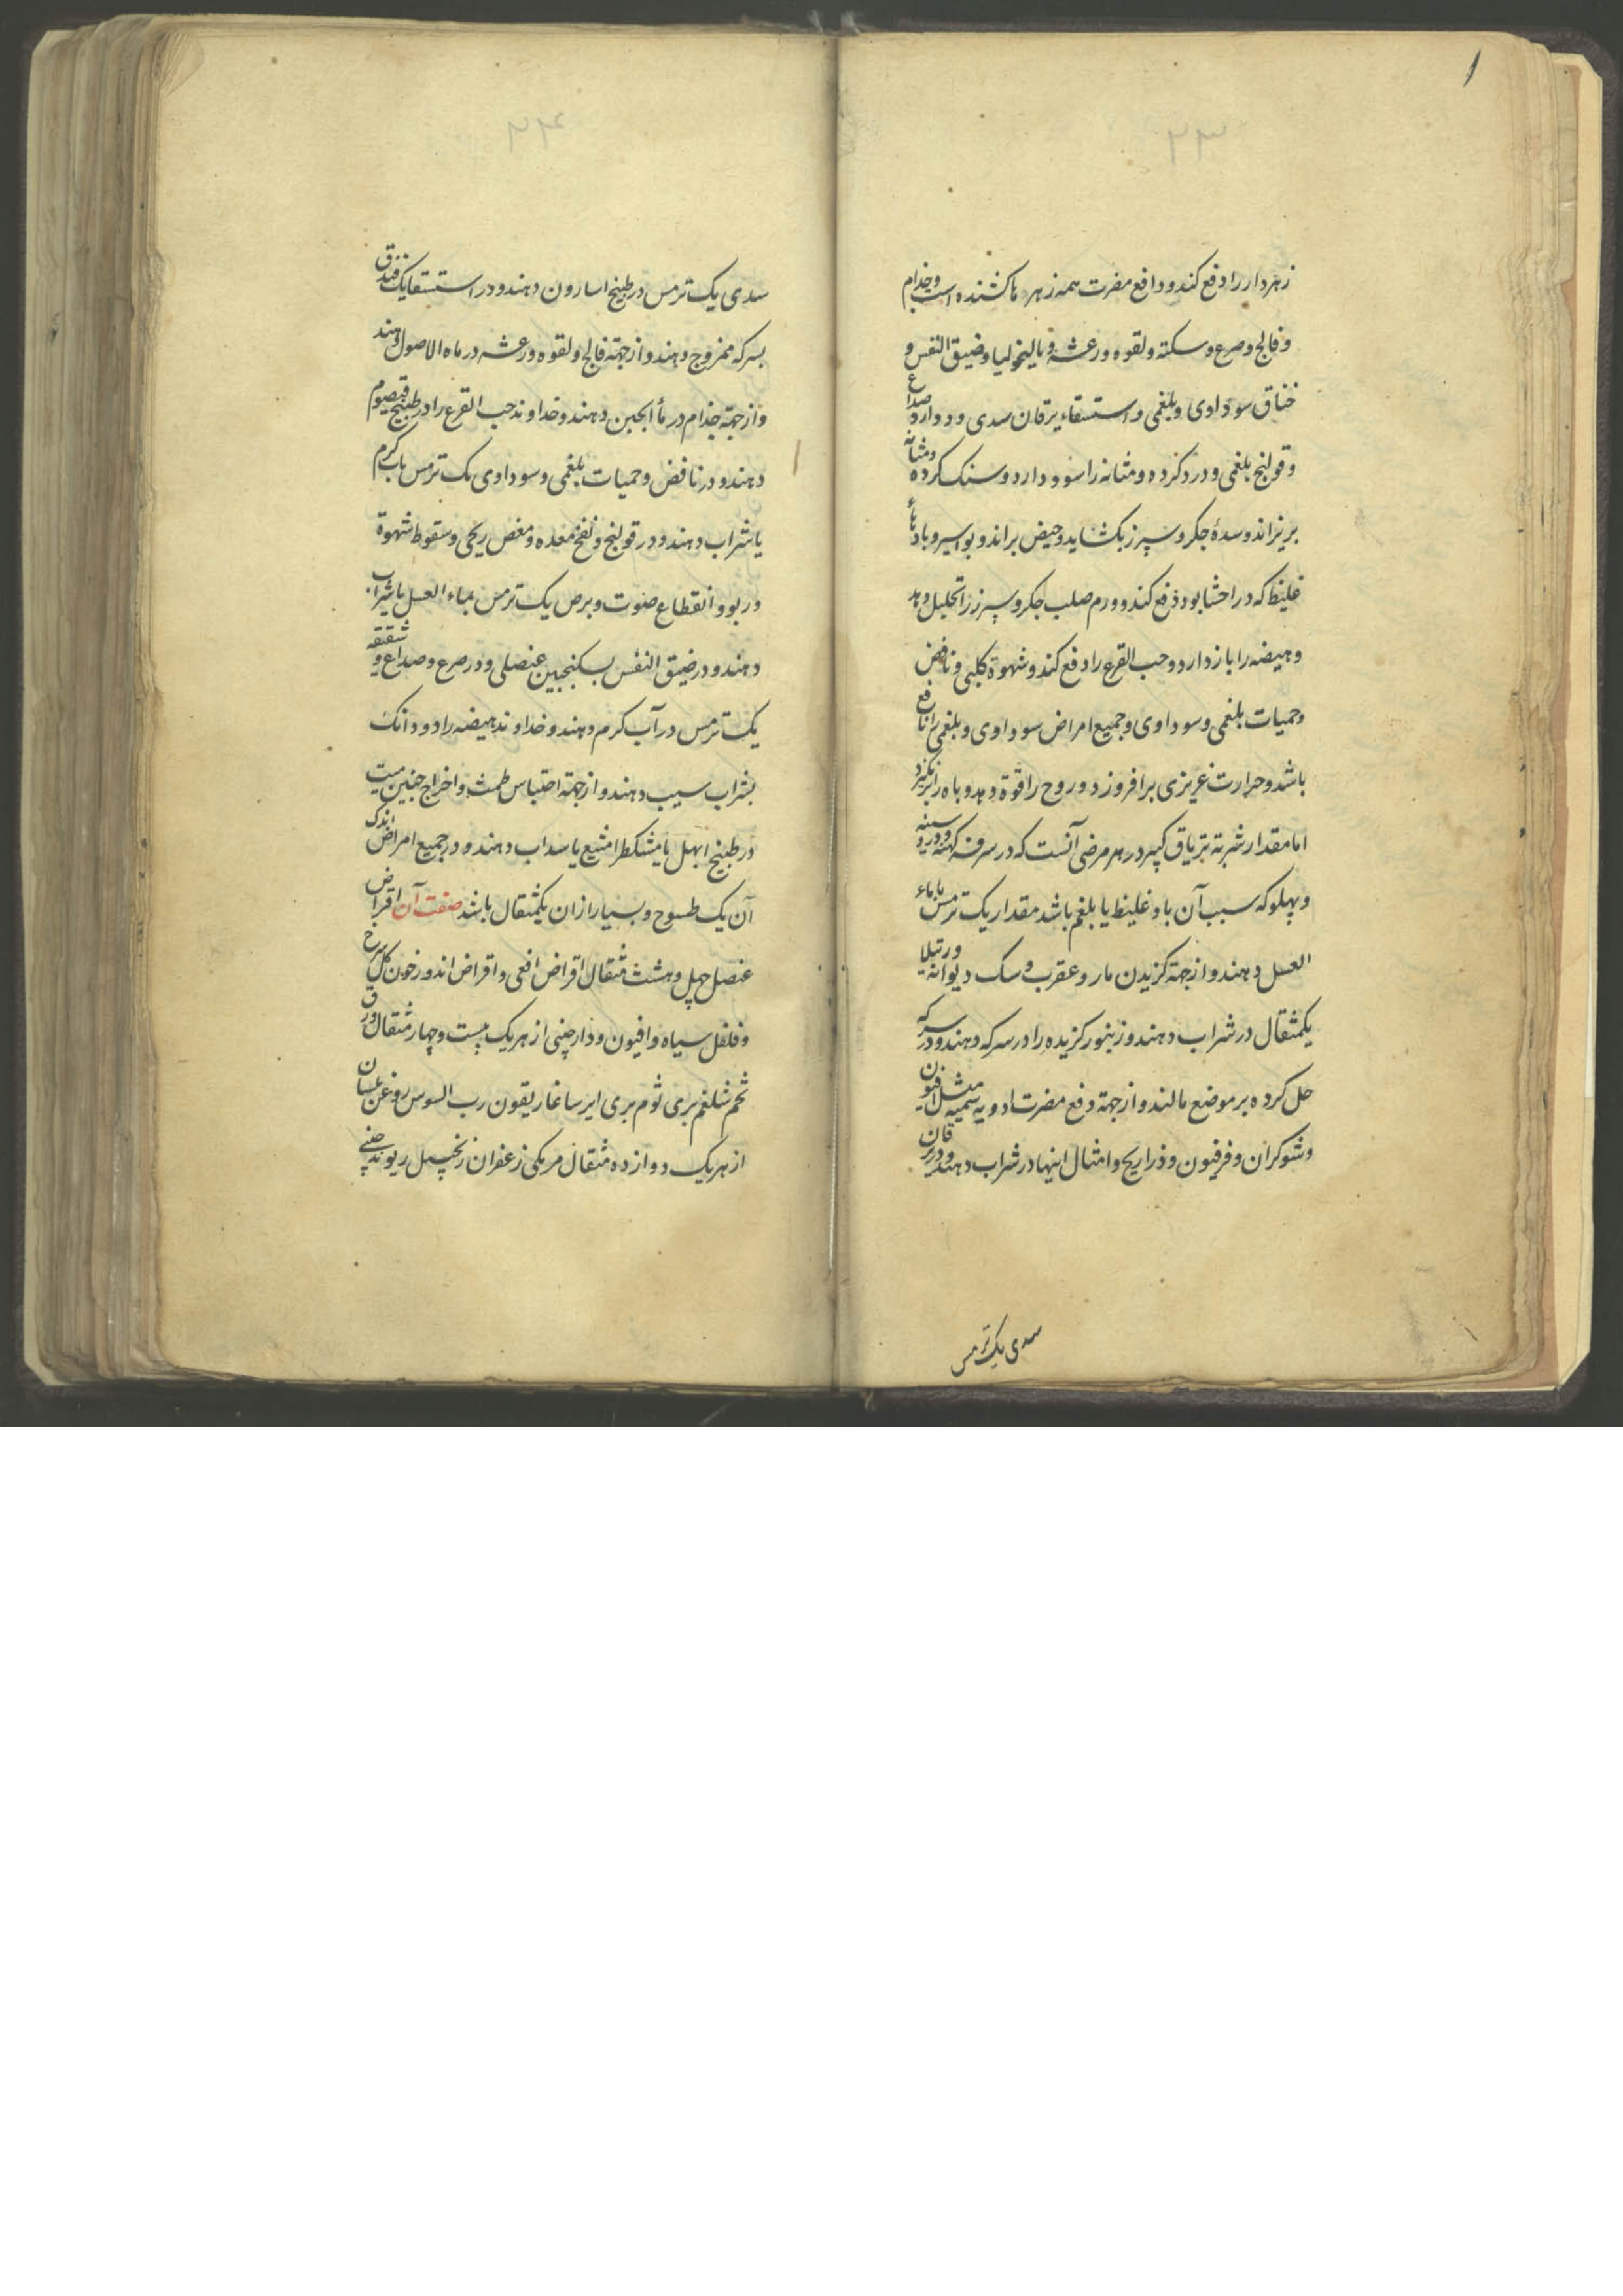 ۲۳
زهردار را دفع کند و دافع مضرت همه زهرها کشنده است و جذام
و فالج و صرع و سکته و لقوه و رعشه و مالیخولیا و ضیق النفس و
خناق سوداوی و بلغمی و استسقاء یرقان سدی و دوار و صداع
و قولنج بلغمی و درد کرده و مثانه را سود دارد و سنک کرده و مثانه
بریزاند و سدهٔ جکر و سپرز بکشاید و حیض براند و بواسیر و بادهاء
غلیظ که در احشا بود دفع کند و ورم صلب جکر و سپرز را تحلیل دهد
و هیضه را باز دارد و حب القرع را دفع کند و شهوة کلبی و نافض
و حمیات بلغمی و سوداوی و جمیع امراض سوداوی و بلغمی را نافع
باشد و حرارت غریزی برافروزد و روح را قوة دهد و باه را برانکیزد
اما مقدار شربة تریاق کبیر در هر مرضی آنست که در سرفه کهنه و درد سینه
و پهلو که سبب آن باد غلیظ یا بلغم باشد مقدار یک ترمس با ماء
العسل دهند و از جهة کزیدن مار و عقرب و سک دیوانه و رتیلا
یکمثقال در شراب دهند و زنبور کزیده را در سرکه دهند و در سرکه
حل کرده بر موضع مالند و از جهة دفع مضرت ادویه سمیه مثل افیون
و شوکران و فرفیون و ذراریح و امثال اینها در شراب دهند و در یرقان
سدی یک ترمس
۲۴
سدی یک ترمس در طبیخ اسارون دهند و در استسقا یک فندق
بسرکه ممزوج دهند و از جهة فالج و لقوه و رعشه در ماء الاصول دهند
و از جهة جذام در ماء الجبن دهند و خداوند حب القرع را در طبیخ قیصوم
دهند و در نافض و حمیات بلغمی و سوداوی یک ترمس باب کرم
یا شراب دهند و در قولنج و نفخ معده و مغص ریحی و سقوط شهوة
و ربو و انقطاع صوت و برص یک ترمس بماء العسل یا شراب
دهند و در ضیق النفس بسکنجبین عنصلی و در صرع و صداع و شقیقه
یک ترمس در آب کرم دهند و خداوند هیضه را دو دانک
بشراب سیب دهند و از جهة احتباس طمث و اخراج جنین میت
در طبیخ ابهل یا مشکطرامشیع یا سداب دهند و در جمیع امراض اندک
آن یک طسوج و بسیار ازان یکمثقال باشد صفت آن اقراض
عنصل چهل و هشت مثقال اقراض افعی و اقراض اندروخون کل سرخ
و فلفل سیاه و افیون و دارچینی از هر یک بیست و چهار مثقال ورق
تخم شلغم بری ثوم بری ایرسا غاریقون رب السوس روغن بلسان
از هر یک دوازده مثقال مر مکی زعفران زنجبیل ریوند چینی